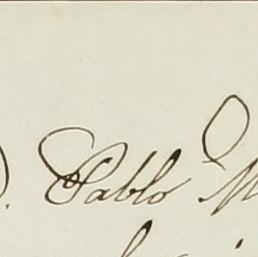 D. Pablo M